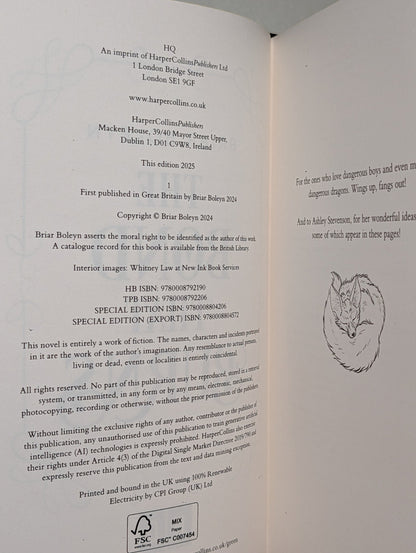 HQ
An imprint of HarperCollinsPublishers Ltd
1 London Bridge Street
London SE1 9GF
www.harpercollins.co.uk
HarperCollinsPublishers
Macken House, 39/40 Mayor Street Upper,
Dublin 1, D01 C9W8, Ireland
This edition 2025
1
First published in Great Britain by Briar Boleyn 2024
Copyright © Briar Boleyn 2024
Briar Boleyn asserts the moral right to be identified as the author of this work.
A catalogue record for this book is available from the British Library.
Interior images: Whitney Law at New Ink Book Services
HB ISBN: 9780008792190
TPB ISBN: 9780008792206
SPECIAL EDITION ISBN: 9780008804206
SPECIAL EDITION (EXPORT) ISBN: 9780008804572
This novel is entirely a work of fiction. The names, characters and incidents portrayed
in it are the work of the author's imagination. Any resemblance to actual persons,
living or dead, events or localities is entirely coincidental.
All rights reserved. No part of this publication may be reproduced, stored in a retrieval
system, or transmitted, in any form or by any means, electronic, mechanical,
photocopying, recording or otherwise, without the prior permission of the publishers.
Without limiting the exclusive rights of any author, contributor or the publisher of
this publication, any unauthorised use of this publication to train generative artificial
intelligence (AI) technologies is expressly prohibited. HarperCollins also exercise
their rights under Article 4(3) of the Digital Single Market Directive 2019/790 and
expressly reserve this publication from the text and data mining exception.
Printed and bound in the UK using 100% Renewable
Electricity by CPI Group (UK) Ltd
FSC
www.fsc.org
MIX
Paper
FSC™ C007454
.co.uk/green
For the ones who love dangerous boys and even m
dangerous dragons. Wings up, fangs out!
And to Ashley Stevenson, for her wonderful ideas
some of which appear in these pages!